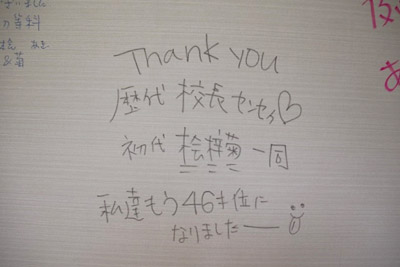 Thank you
歴代 校長センセィ♡
初代 桧梓菊一同
私達もう46才位に
なりましたー